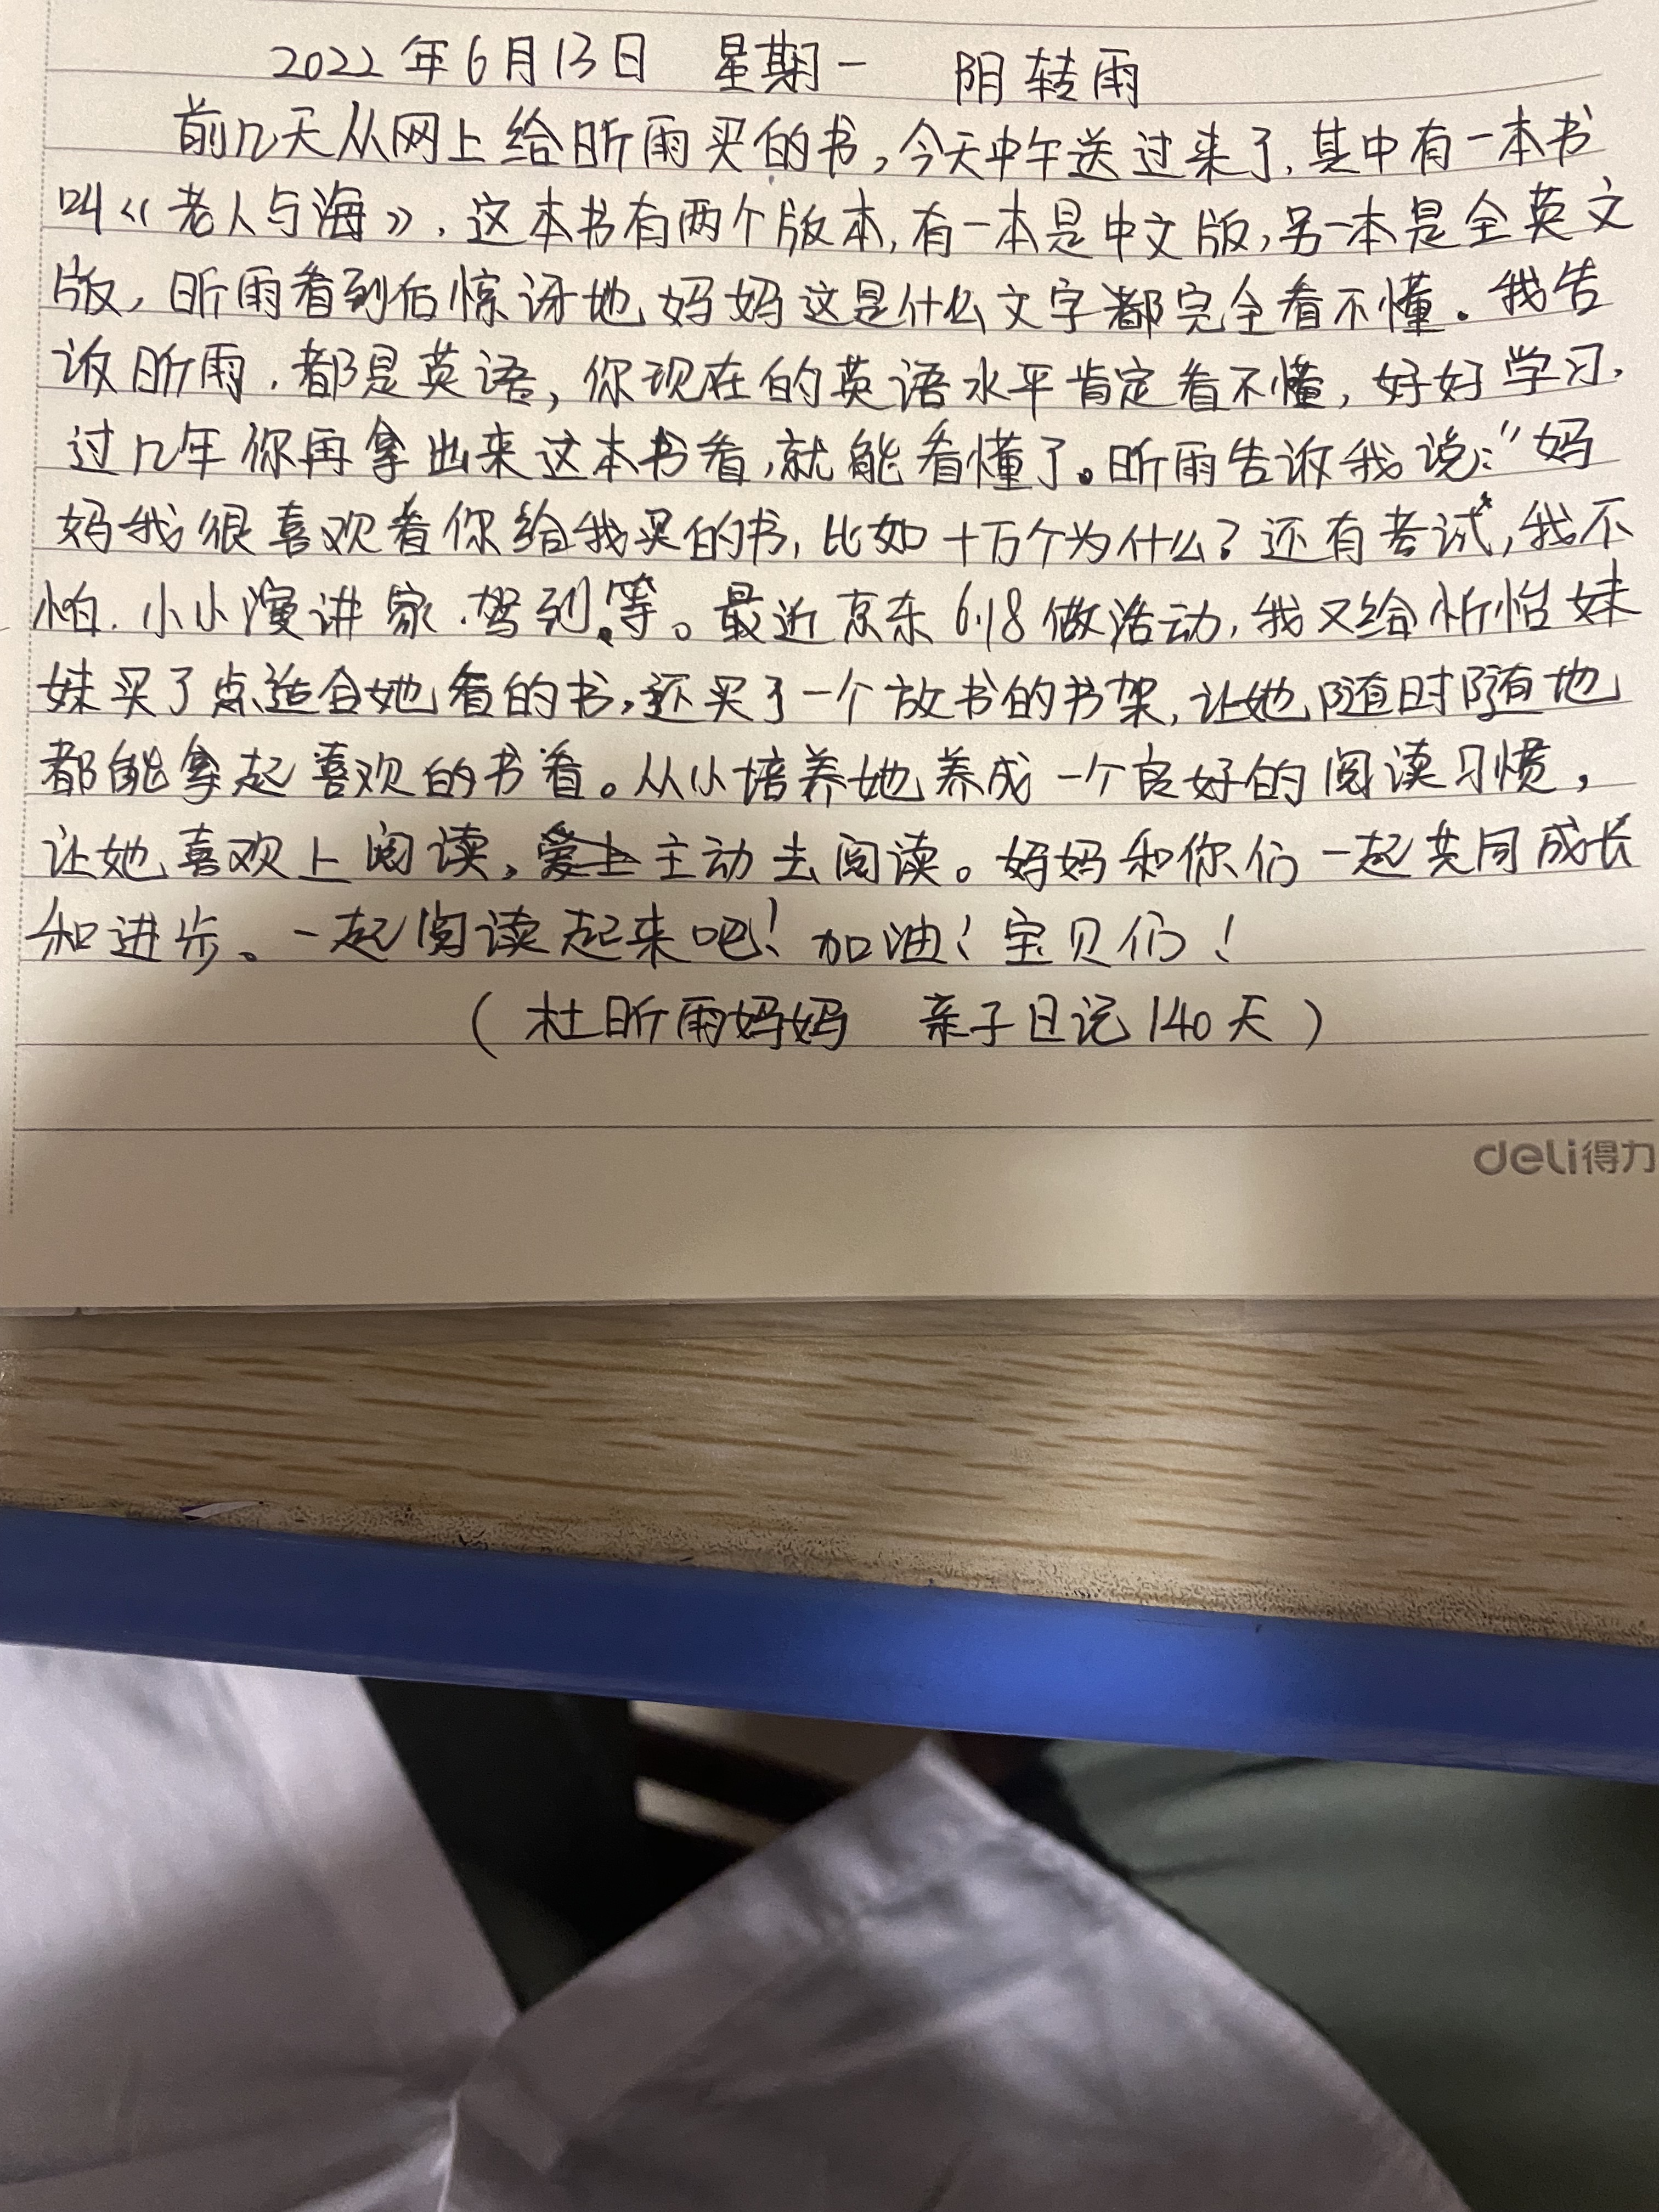 2022年6月13日 星期一 阴转雨
前几天从网上给昕雨买的书,今天中午送过来了,其中有一本书
叫《老人与海》,这本书有两个版本,有一本是中文版,另一本是全英文
版,昕雨看到后惊讶地妈妈这是什么文字都完全看不懂。我告
诉昕雨,都是英语,你现在的英语水平肯定看不懂,好好学习,
过几年你再拿出来这本书看,就能看懂了。昕雨告诉我说:“妈
妈我很喜欢看你给我买的书,比如十万个为什么?还有考试,我不
怕.小小演讲家.驾到,等。最近京东618做活动,我又给忻怡妹
妹买了点适合她看的书,还买了一个放书的书架,让她随时随地
都能拿起喜欢的书看。从小培养她养成一个良好的阅读习惯,
让她喜欢上阅读,主动去阅读。妈妈和你们一起共同成长
和进步。一起阅读起来吧!加油!宝贝们!
(杜昕雨妈妈 亲子日记140天)
deli得力